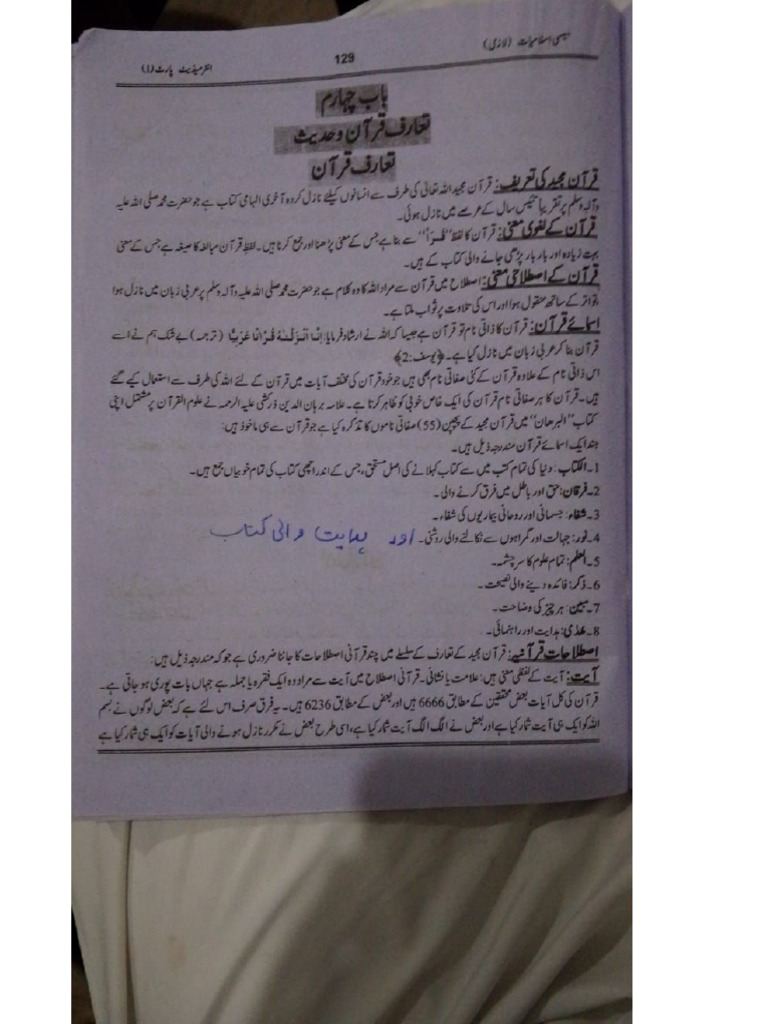 اسلامیات (لازمی)
129
انٹرمیڈیٹ پارٹ (I)
باب چہارم
تعارف قرآن و حدیث
تعارف قرآن
قرآن مجید کی تعریف: قرآن مجید اللہ تعالیٰ کی طرف سے انسانوں کیلئے نازل کردہ آخری الہامی کتاب ہے جو حضرت محمد صلی اللہ علیہ
وآلہ وسلم پر تقریباً تئیس سال کے عرصے میں نازل ہوئی۔
قرآن کے لغوی معنی: قرآن کا لفظ "قَرَأَ" سے بنا ہے جس کے معنی پڑھنا اور جمع کرنا ہیں۔ لفظ قرآن مبالغہ کا صیغہ ہے جس کے معنی
بہت زیادہ اور بار بار پڑھی جانے والی کتاب کے ہیں۔
قرآن کے اصطلاحی معنی: اصطلاح میں قرآن سے مراد اللہ کا وہ کلام ہے جو حضرت محمد صلی اللہ علیہ وآلہ وسلم پر عربی زبان میں نازل ہوا
تواتر کے ساتھ منقول ہوا اور اس کی تلاوت پر ثواب ملتا ہے۔
اسمائے قرآن: قرآن کا ذاتی نام تو قرآن ہے جیسا کہ اللہ نے ارشاد فرمایا: اِنَّا اَنْزَلْنٰهُ قُرْاٰنًا عَرَبِيًّا (ترجمہ) بے شک ہم نے اسے
قرآن بنا کر عربی زبان میں نازل کیا ہے۔ ﴿یوسف:2﴾
اس ذاتی نام کے علاوہ قرآن کے کئی صفاتی نام بھی ہیں جو خود قرآن کی مختلف آیات میں قرآن کے لئے اللہ کی طرف سے استعمال کیے گئے
ہیں۔ قرآن کا ہر صفاتی نام قرآن کی ایک خاص خوبی کو ظاہر کرتا ہے۔ علامہ برہان الدین زرکشی علیہ الرحمہ نے علوم القرآن پر مشتمل اپنی
کتاب "البرھان" میں قرآن مجید کے پچپن (55) صفاتی ناموں کا تذکرہ کیا ہے جو قرآن سے ہی ماخوذ ہیں:
چند ایک اسمائے قرآن مندرجہ ذیل ہیں۔
1۔ الکتاب: دنیا کی تمام کتب میں سے کتاب کہلانے کی اصل مستحق، جس کے اندر اچھی کتاب کی تمام خوبیاں جمع ہیں۔
2۔ فرقان: حق اور باطل میں فرق کرنے والی۔
3۔ شفاء: جسمانی اور روحانی بیماریوں کی شفاء۔
4۔ نور: جہالت اور گمراہوں سے نکالنے والی روشنی۔ اور ہدایت والی کتاب
5۔ العلم: تمام علوم کا سرچشمہ۔
6۔ ذکر: فائدہ دینے والی نصیحت۔
7۔ مبین: ہر چیز کی وضاحت۔
8۔ ھدٰی: ہدایت اور راہنمائی۔
اصطلاحات قرآنیہ: قرآن مجید کے تعارف کے سلسلے میں چند قرآنی اصطلاحات کا جاننا ضروری ہے جو کہ مندرجہ ذیل ہیں:
آیت: آیت کے لفظی معنی ہیں: علامت یا نشانی۔ قرآنی اصطلاح میں آیت سے مراد وہ ایک فقرہ یا جملہ ہے جہاں بات پوری ہو جاتی ہے۔
قرآن کی کل آیات بعض محققین کے مطابق 6666 ہیں اور بعض کے مطابق 6236 ہیں۔ یہ فرق صرف اس لئے ہے کہ بعض لوگوں نے بسم
اللہ کو ایک ہی آیت شمار کیا ہے اور بعض نے الگ الگ آیت شمار کیا ہے، اسی طرح بعض نے مکرر نازل ہونے والی آیات کو ایک ہی شمار کیا ہے